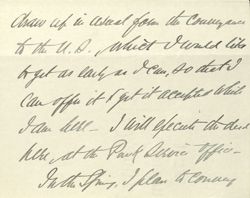 draw up in usual form the conveyance
to the U.S., which I would like
to get as early as I can, so that I
can offer it & get it accepted while
I am here — I will execute the deed
here, at the Park Service office —
In the Spring, I plan to convey